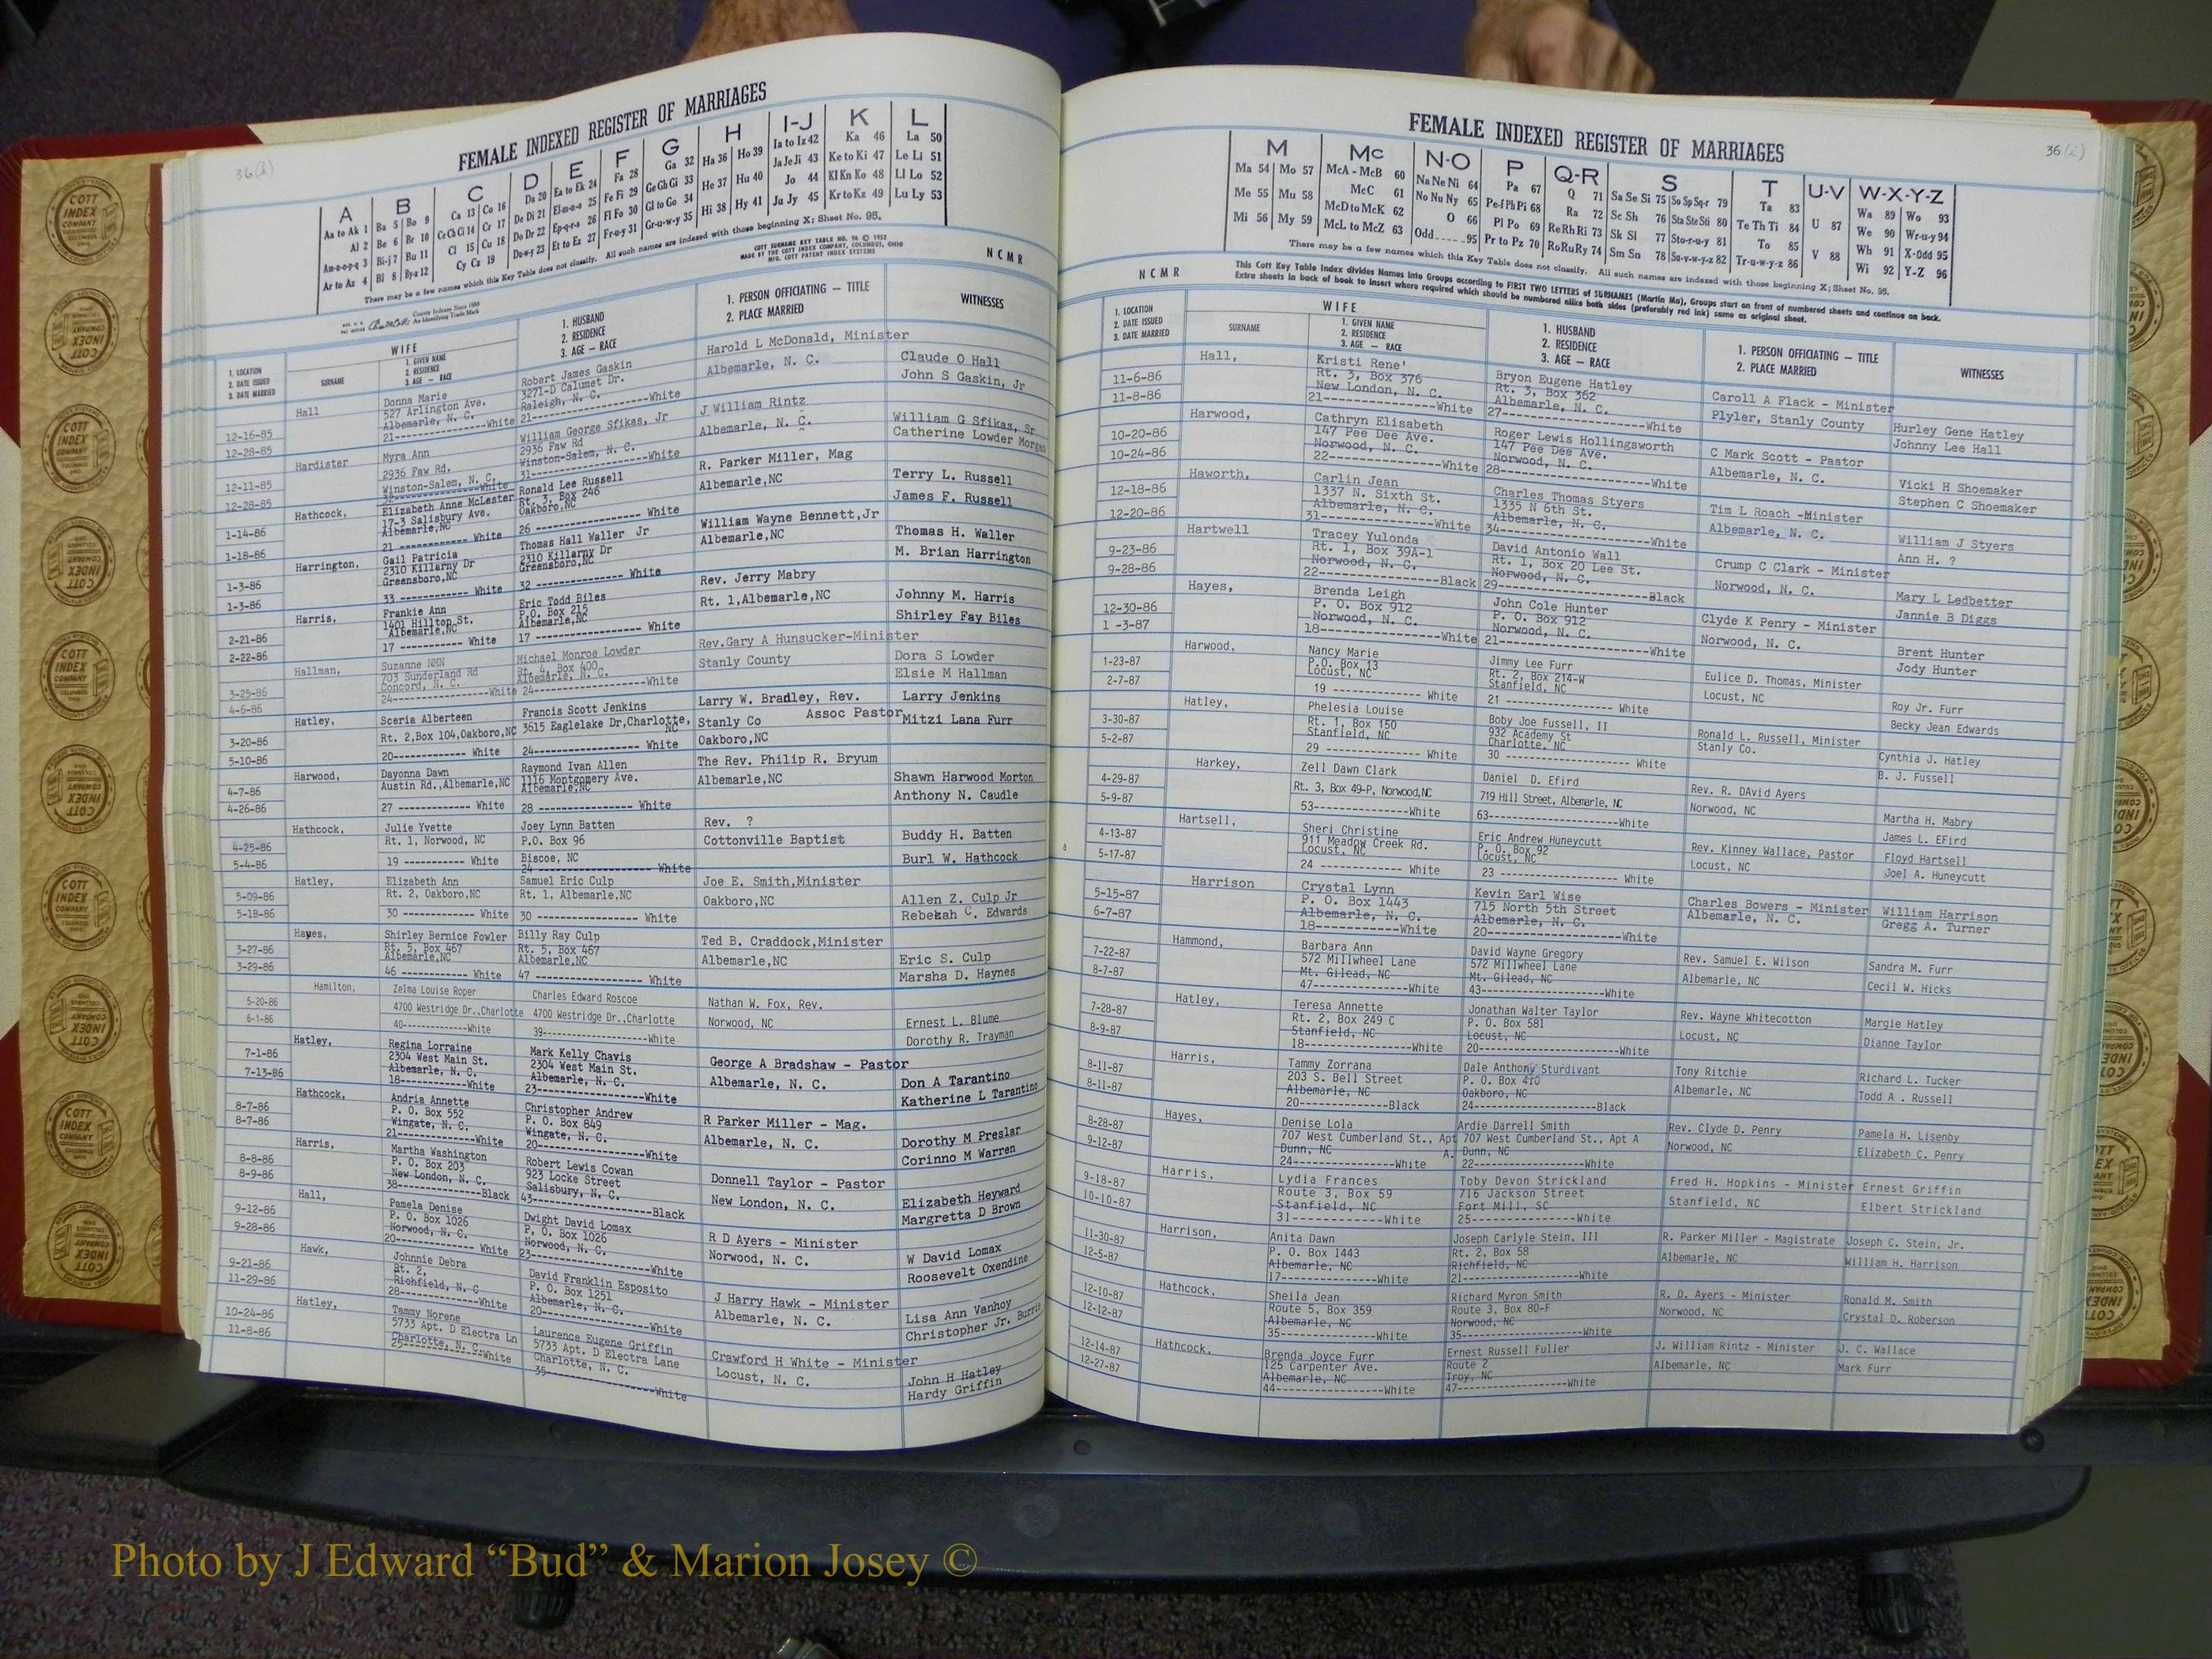 36(h)
FEMALE INDEXED REGISTER OF MARRIAGES
A B C D E F G H I-J K L
Aa to Ak 1 Ba 5 Bo 9 Ca 13 Co 16 Da 20 Ea to Ek 24 Fa 28 Ga 32 Ha 36 Ho 39 Ia to Iz 42 Ka 46 La 50
Al 2 Be 6 Br 10 Ce Ch Ci 14 Cr 17 De Di 21 El-m-n-o 25 Fe Fi 29 Ge Gh Gi 33 He 37 Hu 40 Ja Je Ji 43 Ke to Ki 47 Le Li 51
Am-n-o-p-q 3 Bi-j 7 Bu 11 Cl 15 Cu 18 Do Dr 22 Ep-q-r-s 26 Fl Fo 30 Gl to Go 34 Hi 38 Hy 41 Jo 44 Kl Kn Ko 48 Ll Lo 52
Ar to Az 4 Bl 8 By-z 12 Cy Cz 19 Du-w-y 23 Et to Ez 27 Fr-u-y 31 Gr-u-w-y 35 Ju Jy 45 Kr to Kz 49 Lu Ly 53
There may be a few names which this Key Table does not classify. All such names are indexed with those beginning X; Sheet No. 95.
County Indexes Since 1888
An Identifying Trade Mark
COTT SURNAME KEY TABLE NO. 96 © 1952
MADE BY THE COTT INDEX COMPANY, COLUMBUS, OHIO
MFG. COTT PATENT INDEX SYSTEMS
N C M R
1. LOCATION
2. DATE ISSUED
3. DATE MARRIED
WIFE
SURNAME
1. GIVEN NAME
2. RESIDENCE
3. AGE — RACE
1. HUSBAND
2. RESIDENCE
3. AGE — RACE
1. PERSON OFFICIATING — TITLE
2. PLACE MARRIED
WITNESSES
12-16-85
12-28-85
Hall
Donna Marie
527 Arlington Ave.
Albemarle, N. C.
21------------------White
Robert James Gaskin
3271-D Calumet Dr.
Raleigh, N. C.
21------------------White
Harold L McDonald, Minister
Albemarle, N. C.
Claude O Hall
John S Gaskin, Jr
12-11-85
12-28-85
Hardister
Myra Ann
2936 Faw Rd.
Winston-Salem, N. C.
32------------------White
William George Sfikas, Jr
2936 Faw Rd
Winston-Salem, N. C.
31------------------White
J William Rintz
Albemarle, N. C.
William G Sfikas, Sr
Catherine Lowder Morgan
1-14-86
1-18-86
Hathcock,
Elizabeth Anne McLester
17-3 Salisbury Ave.
Albemarle,NC
21 ------------ White
Ronald Lee Russell
Rt. 3, Box 246
Oakboro,NC
26 ---------------- White
R. Parker Miller, Mag
Albemarle,NC
Terry L. Russell
James F. Russell
1-3-86
1-3-86
Harrington,
Gail Patricia
2310 Killarny Dr
Greensboro,NC
33 ------------ White
Thomas Hall Waller Jr
2310 Killarny Dr
Greensboro,NC
32 ---------------- White
William Wayne Bennett,Jr
Albemarle,NC
Thomas H. Waller
M. Brian Harrington
2-21-86
2-22-86
Harris,
Frankie Ann
1401 Hillton St.
Albemarle,NC
17 ------------ White
Eric Todd Biles
P.O. Box 215
Albemarle,NC
17 ---------------- White
Rev. Jerry Mabry
Rt. 1,Albemarle,NC
Johnny M. Harris
Shirley Fay Biles
3-25-86
4-6-86
Hallman,
Suzanne NMN
703 Sunderland Rd
Concord, N. C.
24------------------White
Michael Monroe Lowder
Rt. 4, Box 400
Albemarle, N. C.
24------------------White
Rev.Gary A Hunsucker-Minister
Stanly County
Dora S Lowder
Elsie M Hallman
3-20-86
5-10-86
Hatley,
Sceria Alberteen
Rt. 2,Box 104,Oakboro,NC
20------------ White
Francis Scott Jenkins
3615 Eaglelake Dr,Charlotte,
NC
24---------------- White
Larry W. Bradley, Rev.
Assoc Pastor
Stanly Co
Oakboro,NC
Larry Jenkins
Mitzi Lana Furr
4-7-86
4-26-86
Harwood,
Dayonna Dawn
Austin Rd.,Albemarle,NC
27 ------------ White
Raymond Ivan Allen
1116 Montgomery Ave.
Albemarle,NC
28 ---------------- White
The Rev. Philip R. Bryum
Albemarle,NC
Shawn Harwood Morton
Anthony N. Caudle
4-25-86
5-4-86
Hathcock,
Julie Yvette
Rt. 1, Norwood, NC
19 ------------ White
Joey Lynn Batten
P.O. Box 96
Biscoe, NC
24 ---------------- White
Rev. ?
Cottonville Baptist
Buddy H. Batten
Burl W. Hathcock
5-09-86
5-18-86
Hatley,
Elizabeth Ann
Rt. 2, Oakboro,NC
30 ------------ White
Samuel Eric Culp
Rt. 1, Albemarle,NC
30 ---------------- White
Joe E. Smith,Minister
Oakboro,NC
Allen Z. Culp Jr
Rebekah C. Edwards
3-27-86
3-29-86
Hayes,
Shirley Bernice Fowler
Rt. 5, Box 467
Albemarle,NC
46 ------------ White
Billy Ray Culp
Rt. 5, Box 467
Albemarle,NC
47 ---------------- White
Ted B. Craddock,Minister
Albemarle,NC
Eric S. Culp
Marsha D. Haynes
5-20-86
6-1-86
Hamilton,
Zelma Louise Roper
4700 Westridge Dr.,Charlotte
40-------------White
Charles Edward Roscoe
4700 Westridge Dr.,Charlotte
39------------------White
Nathan W. Fox, Rev.
Norwood, NC
Ernest L. Blume
Dorothy R. Trayman
7-1-86
7-13-86
Hatley,
Regina Lorraine
2304 West Main St.
Albemarle, N. C.
18-------------White
Mark Kelly Chavis
2304 West Main St.
Albemarle, N. C.
23------------------White
George A Bradshaw - Pastor
Albemarle, N. C.
Don A Tarantino
Katherine L Tarantino
8-7-86
8-7-86
Hathcock,
Andria Annette
P. O. Box 552
Wingate, N. C.
21-------------White
Christopher Andrew
P. O. Box 849
Wingate, N. C.
20------------------White
R Parker Miller - Mag.
Albemarle, N. C.
Dorothy M Preslar
Corinno M Warren
8-8-86
8-9-86
Harris,
Martha Washington
P. O. Box 203
New London, N. C.
38-------------Black
Robert Lewis Cowan
923 Locke Street
Salisbury, N. C.
43------------------Black
Donnell Taylor - Pastor
New London, N. C.
Elizabeth Heyward
Margretta D Brown
9-12-86
9-28-86
Hall,
Pamela Denise
P. O. Box 1026
Norwood, N. C.
20-------------- White
Dwight David Lomax
P. O. Box 1026
Norwood, N. C.
23------------------White
R D Ayers - Minister
Norwood, N. C.
W David Lomax
Roosevelt Oxendine
9-21-86
11-29-86
Hawk,
Johnnie Debra
Rt. 2,
Richfield, N. C
28--------------White
David Franklin Esposito
P. O. Box 1251
Albemarle, N. C.
20------------------White
J Harry Hawk - Minister
Albemarle, N. C.
Lisa Ann Vanhoy
Christopher Jr. Burris
10-24-86
11-8-86
Hatley,
Tammy Norene
5733 Apt. D Electra Ln
Charlotte, N. C.
25--------------White
Laurence Eugene Griffin
5733 Apt. D Electra Lane
Charlotte, N. C.
35------------------White
Crawford H White - Minister
Locust, N. C.
John H Hatley
Hardy Griffin
36(i)
FEMALE INDEXED REGISTER OF MARRIAGES
M Mc N-O P Q-R S T U-V W-X-Y-Z
Ma 54 Mo 57 McA - McB 60 Na Ne Ni 64 Pa 67 Q 71 Sa Se Si 75 So Sp Sq-r 79 Ta 83 U 87 Wa 89 Wo 93
Me 55 Mu 58 McC 61 No Nu Ny 65 Pe-f Ph Pi 68 Ra 72 Sc Sh 76 Sta Ste Sti 80 Te Th Ti 84 V 88 We 90 Wr-u-y 94
Mi 56 My 59 McD to McK 62 O 66 Pl Po 69 Re Rh Ri 73 Sk Sl 77 Sto-r-u-y 81 To 85 Wh 91 X-odd 95
McL to McZ 63 Odd.....95 Pr to Pz 70 Ro Ru Ry 74 Sm Sn 78 Su-v-w-y-z 82 Tr-u-w-y-z 86 Wi 92 Y-Z 96
There may be a few names which this Key Table does not classify. All such names are indexed with those beginning X; Sheet No. 95.
N C M R
This Cott Key Table Index divides Names into Groups according to FIRST TWO LETTERS of SURNAMES (Martin Ma), Groups start on front of numbered sheets and continue on back.
Extra sheets in back of book to insert where required which should be numbered alike both sides (preferably red ink) same as original sheet.
1. LOCATION
2. DATE ISSUED
3. DATE MARRIED
WIFE
SURNAME
1. GIVEN NAME
2. RESIDENCE
3. AGE — RACE
1. HUSBAND
2. RESIDENCE
3. AGE — RACE
1. PERSON OFFICIATING — TITLE
2. PLACE MARRIED
WITNESSES
11-6-86
11-8-86
Hall,
Kristi Rene'
Rt. 3, Box 376
New London, N. C.
21------------------White
Bryon Eugene Hatley
Rt. 3, Box 362
Albemarle, N. C.
27------------------White
Caroll A Flack - Minister
Plyler, Stanly County
Hurley Gene Hatley
Johnny Lee Hall
10-20-86
10-24-86
Harwood,
Cathryn Elisabeth
147 Pee Dee Ave.
Norwood, N. C.
22------------------White
Roger Lewis Hollingsworth
147 Pee Dee Ave.
Norwood, N. C.
28------------------White
C Mark Scott - Pastor
Albemarle, N. C.
Vicki H Shoemaker
Stephen C Shoemaker
12-18-86
12-20-86
Haworth,
Carlin Jean
1337 N. Sixth St.
Albemarle, N. C.
31------------------White
Charles Thomas Styers
1335 N 6th St.
Albemarle, N. C.
34------------------White
Tim L Roach -Minister
Albemarle, N. C.
William J Styers
Ann H. ?
9-23-86
9-28-86
Hartwell
Tracey Yulonda
Rt. 1, Box 39A-1
Norwood, N. C.
22------------------Black
David Antonio Wall
Rt. 1, Box 20 Lee St.
Norwood, N. C.
29------------------Black
Crump C Clark - Minister
Norwood, N. C.
Mary L Ledbetter
Jannie B Diggs
12-30-86
1 -3-87
Hayes,
Brenda Leigh
P. O. Box 912
Norwood, N. C.
18------------------White
John Cole Hunter
P. O. Box 912
Norwood, N. C.
21------------------White
Clyde K Penry - Minister
Norwood, N. C.
Brent Hunter
Jody Hunter
1-23-87
2-7-87
Harwood,
Nancy Marie
P.O. Box 13
Locust, NC
19 ------------ White
Jimmy Lee Furr
Rt. 2, Box 214-W
Stanfield, NC
21 ---------------- White
Eulice D. Thomas, Minister
Locust, NC
Roy Jr. Furr
Becky Jean Edwards
3-30-87
5-2-87
Hatley,
Phelesia Louise
Rt. 1, Box 150
Stanfield, NC
29 ------------ White
Boby Joe Fussell, II
932 Academy St
Charlotte, NC
30 ---------------- White
Ronald L. Russell, Minister
Stanly Co.
Cynthia J. Hatley
B. J. Fussell
4-29-87
5-9-87
Harkey,
Zell Dawn Clark
Rt. 3, Box 49-P, Norwood,NC
53---------------White
Daniel D. Efird
719 Hill Street, Albemarle, NC
63------------------White
Rev. R. DAvid Ayers
Norwood, NC
Martha H. Mabry
James L. EFird
4-13-87
5-17-87
Hartsell,
Sheri Christine
911 Meadow Creek Rd.
Locust, NC
24 ------------ White
Eric Andrew Huneycutt
P. O. Box 92
Locust, NC
23 ---------------- White
Rev. Kinney Wallace, Pastor
Locust, NC
Floyd Hartsell
Joel A. Huneycutt
5-15-87
6-7-87
Harrison
Crystal Lynn
P. O. Box 1443
Albemarle, N. C.
18-------------White
Kevin Earl Wise
715 North 5th Street
Albemarle, N. C.
20------------------White
Charles Bowers - Minister
Albemarle, N. C.
William Harrison
Gregg A. Turner
7-22-87
8-7-87
Hammond,
Barbara Ann
572 Millwheel Lane
Mt. Gilead, NC
47---------------White
David Wayne Gregory
572 Millwheel Lane
Mt. Gilead, NC
43------------------White
Rev. Samuel E. Wilson
Albemarle, NC
Sandra M. Furr
Cecil W. Hicks
7-28-87
8-9-87
Hatley,
Teresa Annette
Rt. 2, Box 249 C
Stanfield, NC
18----------------White
Jonathan Walter Taylor
P. O. Box 581
Locust, NC
20------------------White
Rev. Wayne Whitecotton
Locust, NC
Margie Hatley
Dianne Taylor
8-11-87
8-11-87
Harris,
Tammy Zorrana
203 S. Bell Street
Albemarle, NC
20---------------Black
Dale Anthony Sturdivant
P. O. Box 410
Oakboro, NC
24------------------Black
Tony Ritchie
Albemarle, NC
Richard L. Tucker
Todd A . Russell
8-28-87
9-12-87
Hayes,
Denise Lola
707 West Cumberland St., Apt
A.
Dunn, NC
24------------------White
Ardie Darrell Smith
707 West Cumberland St., Apt A
Dunn, NC
22------------------White
Rev. Clyde D. Penry
Norwood, NC
Pamela H. Lisenby
Elizabeth C. Penry
9-18-87
10-10-87
Harris,
Lydia Frances
Route 3, Box 59
Stanfield, NC
31---------------White
Toby Devon Strickland
716 Jackson Street
Fort Mill, SC
25------------------White
Fred H. Hopkins - Minister
Stanfield, NC
Ernest Griffin
Elbert Strickland
11-30-87
12-5-87
Harrison,
Anita Dawn
P. O. Box 1443
Albemarle, NC
17------------------White
Joseph Carlyle Stein, III
Rt. 2, Box 58
Richfield, NC
21------------------White
R. Parker Miller - Magistrate
Albemarle, NC
Joseph C. Stein, Jr.
William H. Harrison
12-10-87
12-12-87
Hathcock,
Sheila Jean
Route 5, Box 359
Albemarle, NC
35------------------White
Richard Myron Smith
Route 3, Box 80-F
Norwood, NC
35------------------White
R. D. Ayers - Minister
Norwood, NC
Ronald M. Smith
Crystal D. Roberson
12-14-87
12-27-87
Hathcock,
Brenda Joyce Furr
125 Carpenter Ave.
Albemarle, NC
44------------------White
Ernest Russell Fuller
Route 2
Troy, NC
47------------------White
J. William Rintz - Minister
Albemarle, NC
J. C. Wallace
Mark Furr
COTT INDEX COMPANY
Photo by J Edward “Bud” & Marion Josey ©